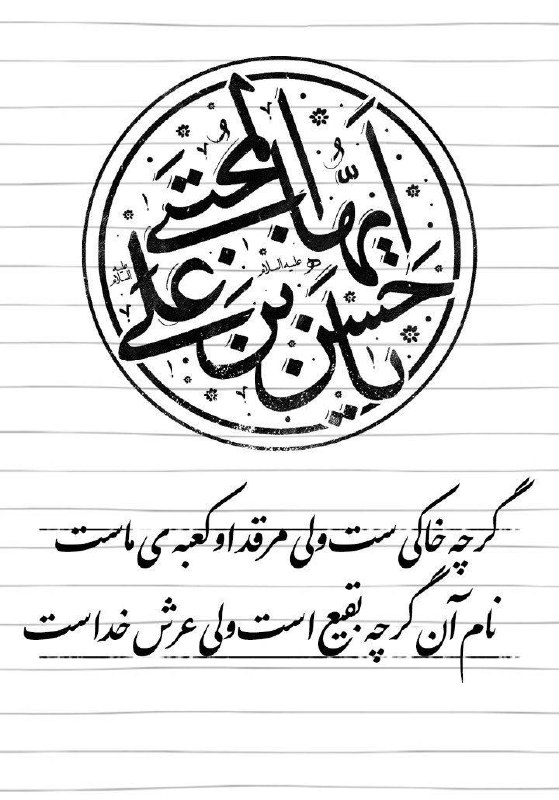 یا حسن بن علی
ایها المجتبی
علیه السلام
علیه السلام
گرچه خاکی ست ولی مرقد او کعبه ی ماست
نام آن گرچه بقیع است ولی عرش خداست